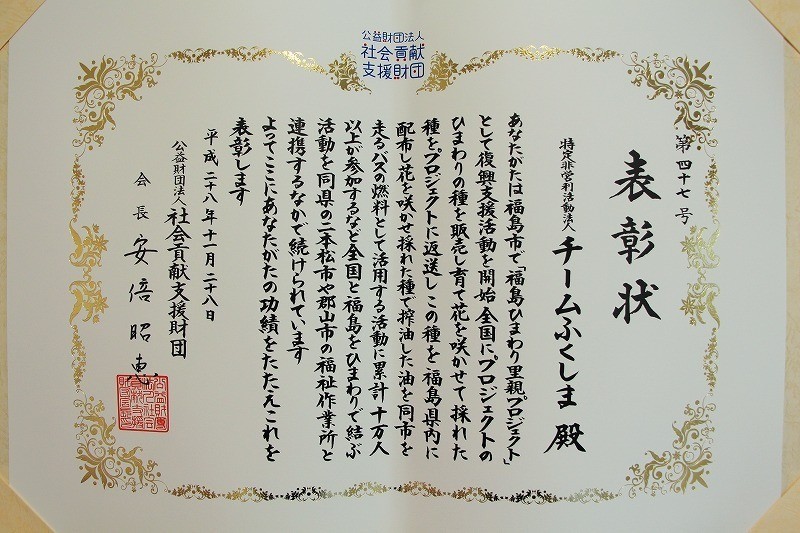 公益財団法人
社会貢献
支援財団
第四十七号
表彰状
特定非営利活動法人 チームふくしま 殿
あなたがたは福島市で「福島ひまわり里親プロジェクト」
として復興支援活動を開始 全国にプロジェクトの
ひまわりの種を販売し育て花を咲かせて採れた
種をプロジェクトに返送し この種を 福島県内に
配布し花を咲かせ採れた種で搾油した油を同市を
走るバスの燃料として活用する活動に累計 十万人
以上が参加するなど全国と福島をひまわりで結ぶ
活動を同県の二本松市や郡山市の福祉作業所と
連携するなかで続けられています
よってここにあなたがたの功績をたたえこれを
表彰します
平成二十八年十一月二十八日
公益財団法人 社会貢献支援財団
会長 安倍昭恵